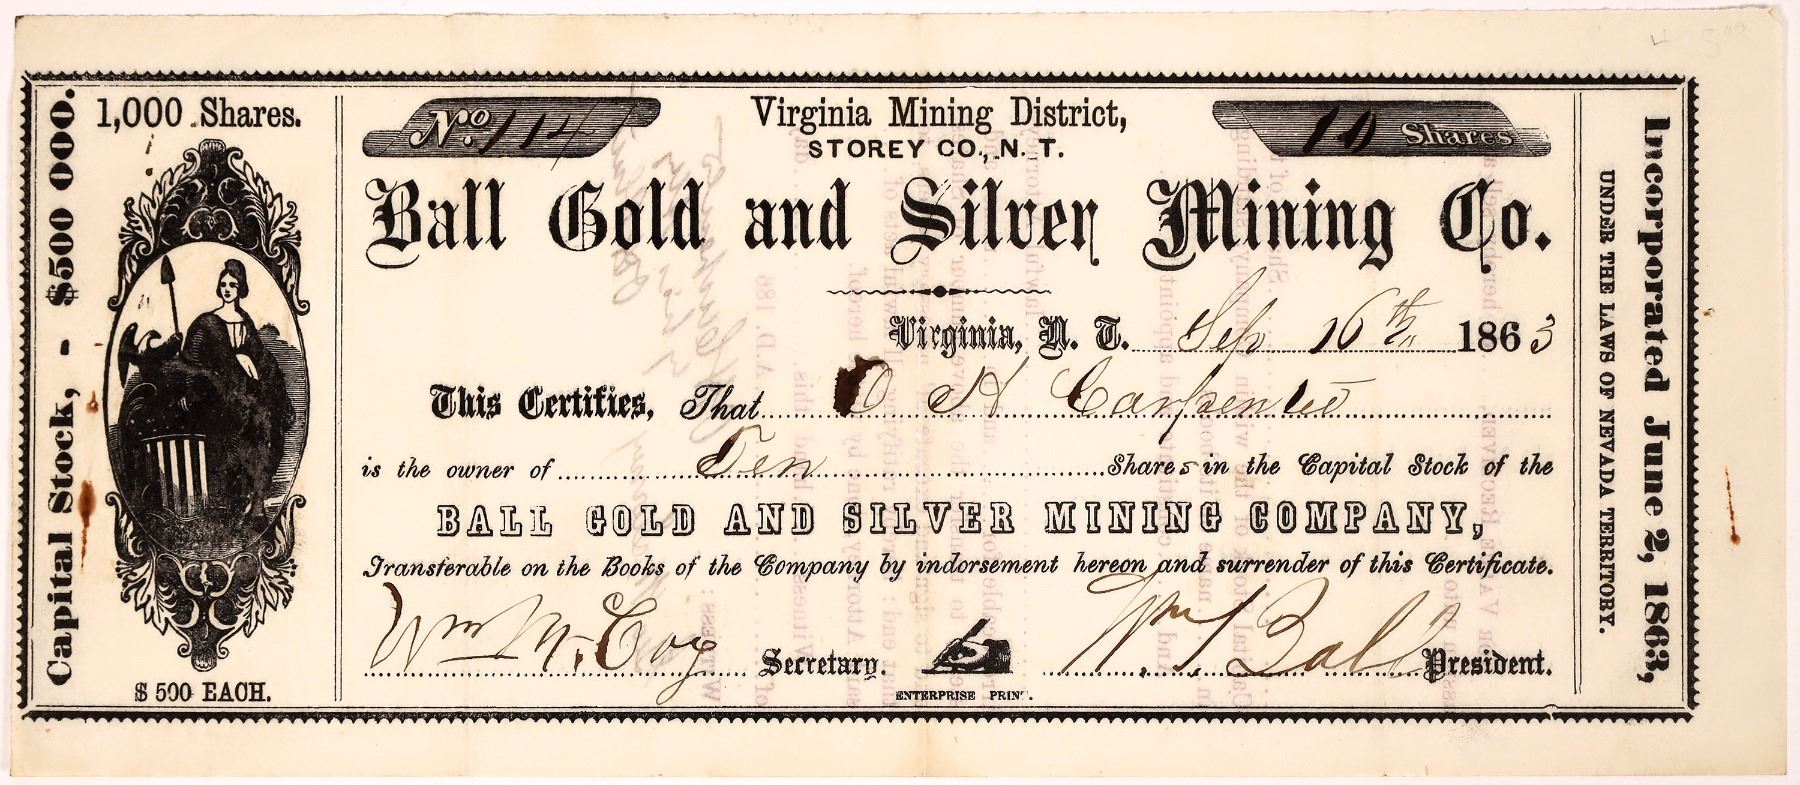 1,000 Shares.
Capital Stock, - $500 000.
$500 EACH.
No. 114
Virginia Mining District,
STOREY CO., N. T.
10 Shares
Ball Gold and Silver Mining Co.
Virginia, N. T. Sep 16th 1863
This Certifies, That O A Carpenter
is the owner of Ten Shares in the Capital Stock of the
BALL GOLD AND SILVER MINING COMPANY,
Transferable on the Books of the Company by indorsement hereon and surrender of this Certificate.
Wm McCoy Secretary.
Wm Ball President.
ENTERPRISE PRINT.
Incorporated June 2, 1863,
UNDER THE LAWS OF NEVADA TERRITORY.